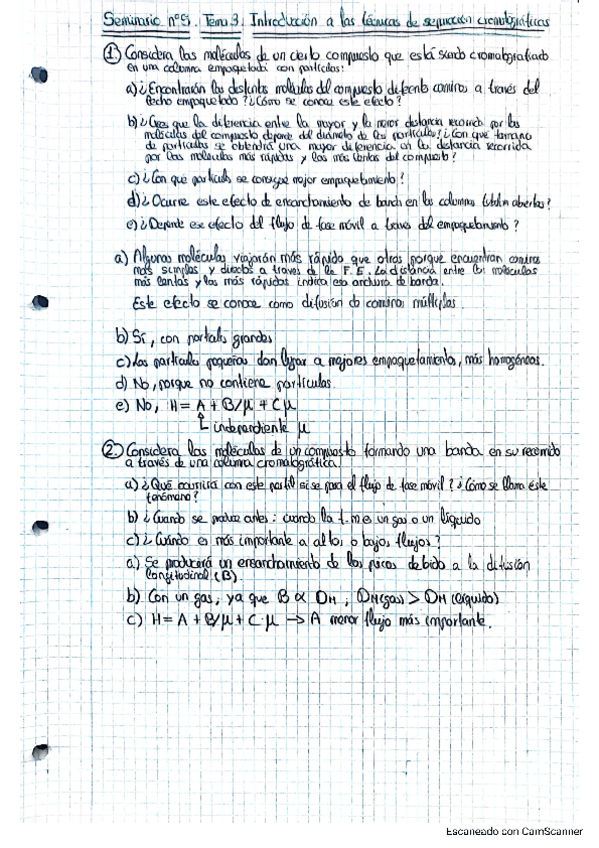 Seminario nº5. Tema 3. Introducción a las técnicas de separación cromatográficas
① Considera las moléculas de un cierto compuesto que está siendo cromatografiado
en una columna empaquetada con partículas:
a) ¿Encontrarán las distintas moléculas del compuesto diferente caminos a través del
lecho empaquetado? ¿Cómo se conoce este efecto?
b) ¿Crees que la diferencia entre la mayor y la menor distancia recorrida por las
moléculas del compuesto depende del diámetro de las partículas? ¿Con qué tamaño
de partículas se obtendrá una mayor diferencia en la distancia recorrida
por las moléculas más rápidas y las más lentas del compuesto?
c) ¿Con qué partículas se consigue mejor empaquetamiento?
d) ¿Ocurre este efecto de ensanchamiento de banda en las columnas abiertas?
e) ¿Depende ese efecto del flujo de fase móvil a través del empaquetamiento?
a) Algunas moléculas viajarán más rápido que otras porque encuentran caminos
más simples y directos a través de la F.E. La distancia entre las moléculas
más lentas y las más rápidas indica esa anchura de banda.
Este efecto se conoce como difusión de caminos múltiples.
b) Sí, con partículas grandes
c) Las partículas pequeñas dan lugar a mejores empaquetamientos, más homogéneos.
d) No, porque no contiene partículas.
e) No, H = A + B/μ + Cμ
independiente μ
② Considera las moléculas de un compuesto formando una banda en su recorrido
a través de una columna cromatográfica.
a) ¿Qué ocurrirá con este perfil si se para el flujo de fase móvil? ¿Cómo se llama éste
fenómeno?
b) ¿Cuando se produce antes: cuando la f.m es un gas o un líquido
c) ¿Cuándo es más importante a altos o bajos flujos?
a) Se producirá un ensanchamiento de los picos debido a la difusión
longitudinal (B).
b) Con un gas, ya que B ∝ DM, DM(gas) > DM (líquido)
c) H = A + B/μ + C·μ → A menor flujo más importante.
Escaneado con CamScanner